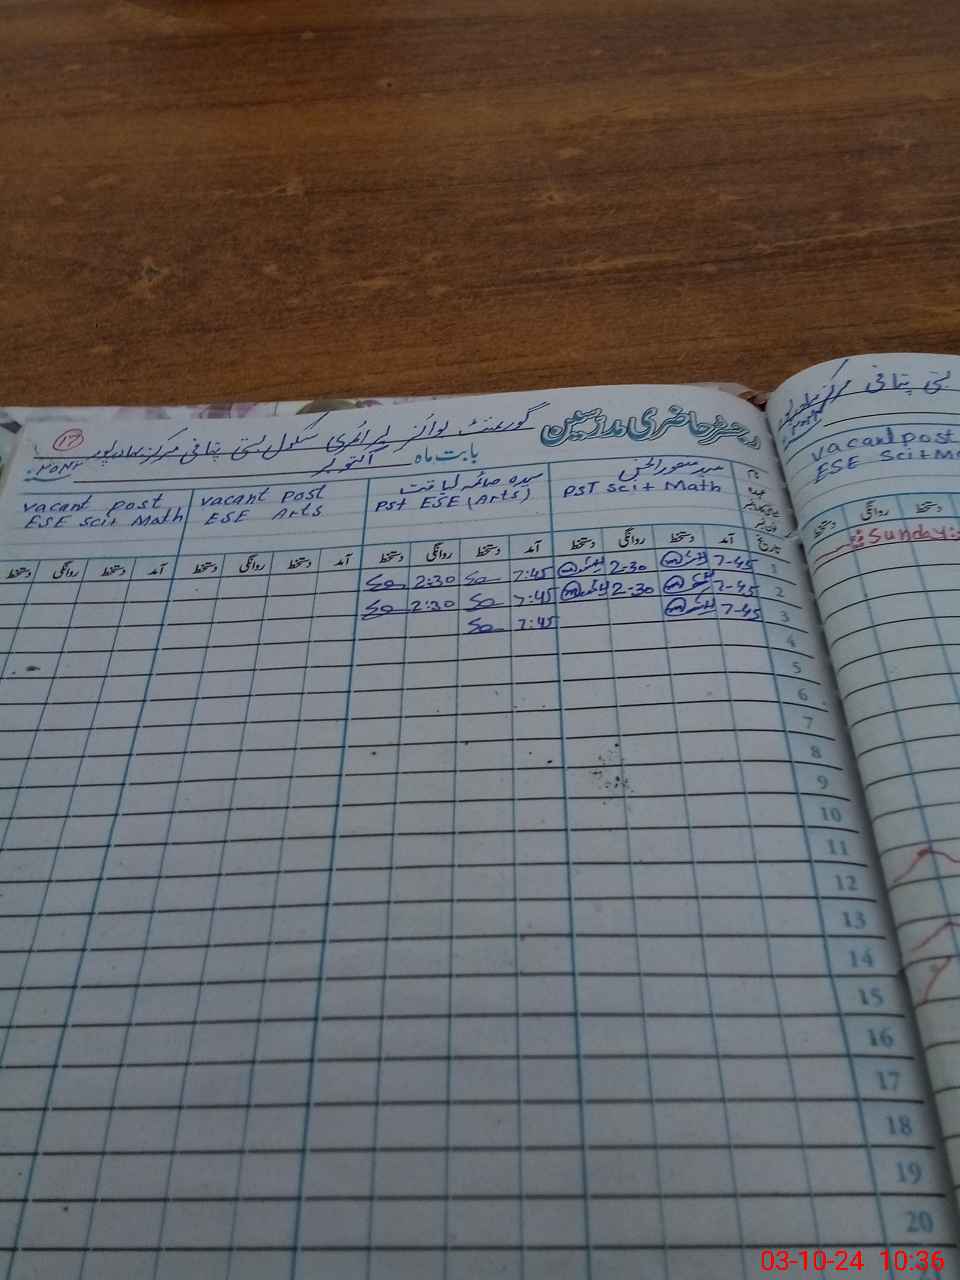 رجسٹر حاضری مدرسین گورنمنٹ بوائز پرائمری سکول بستی پتافی مرکز
17
بابت ماہ اکتوبر
PST Sci + Math
PST ESE (Arts)
vacant post
ESE Arts
vacant post
ESE Sci + Math
تاریخ آمد دستخط روانگی دستخط آمد دستخط روانگی دستخط آمد دستخط روانگی دستخط آمد دستخط روانگی دستخط
1 7-45 2-30 7:45 2:30
2 7-45 2-30 7:45 2:30
3 7-45 7:45
4
5
6
7
8
9
10
11
12
13
14
15
16
17
18
19
20
بستی پتافی مرکز
vacant post
ESE Sci + Ma
دستخط روانگی دستخط
Sunday
03-10-24 10:36